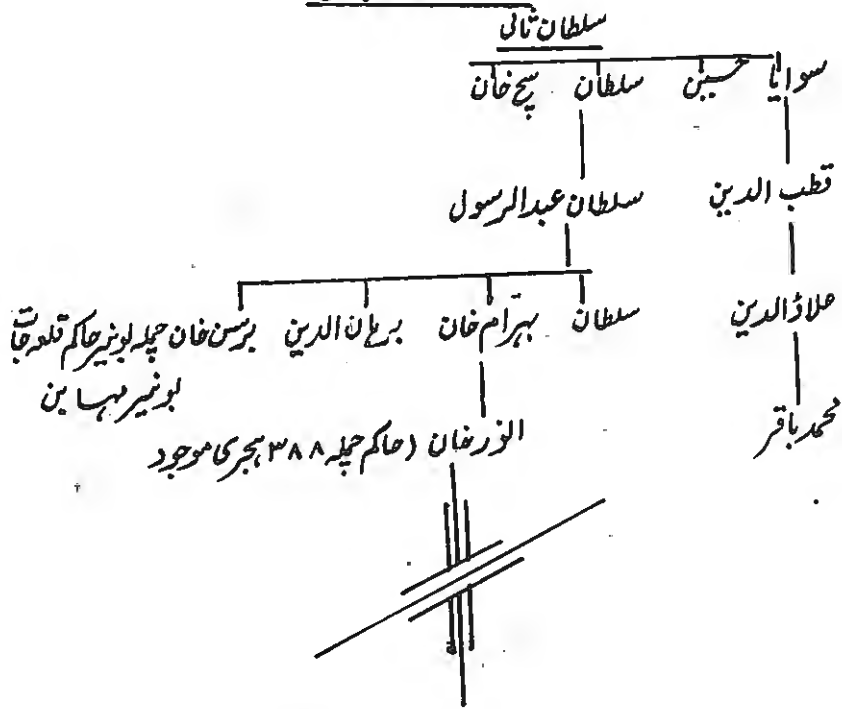 سلطان تالی
سوایا حسین سلطان سیح خان
قطب الدین سلطان عبدالرسول
علاؤالدین سلطان بہرام خان برہان الدین برسن خان چملہ بونیر حاکم قلعہ جات
بونیر مہابن
محمد باقر انور خان (حاکم چملہ ۳۸۸ ہجری موجود